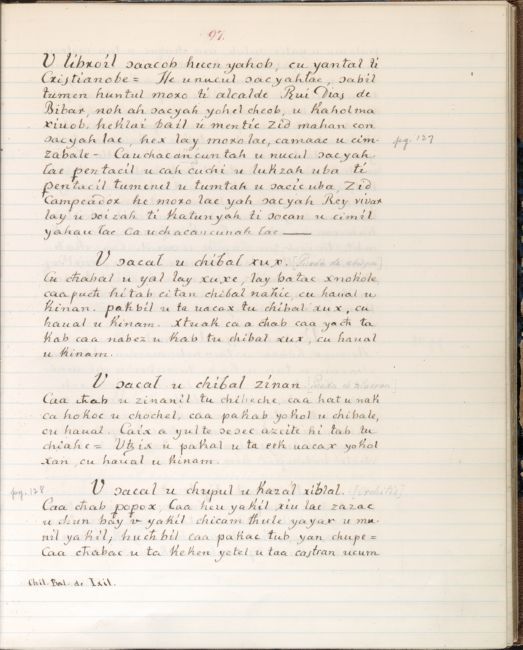 97.
V libroil ɔaacob hecen yahob, cu yantal ti
Cristianobe = He unucul ɔacyahlae, ɔabil
tumen huntul moro ti alcalde Rui Dias de
Bibar, noh ah ɔacyah yohel cheob, u kaholma
xiuob. heklai bail u mentic Zid mahan con
ɔacyah lae, hex lay morolae, camaac u cim-
zabale - Cauchacancuntah u nucul ɔacyah
lae pentacil u cah cuchi u lukzah uba ti
pentacil tumenel u tumtah u ɔacic uba, Zid
Campeador he moro lae yah ɔacyah Rey vivar
lay u ɔoizah ti katunyah ti ɔocan u cimil
yahau lae Ca uchacancunah lae —
pg. 127
V ɔacal u chibal xux.
Cu chabal u yal lay xuxe, lay batac xnokole
caapuch hitab citan chibal nahic, cu haual u
kinan. pakbil u ta uacax tu chibal xux, cu
haual u kinam. xtuak ca a chab caa yach ta
kab caa nabez u kab tu chibal xux, cu haual
u kinam.
V ɔacal u chibal zinan
Caa chab u zinanil tu chibeche, caa hatunak
ca hokoc u chochel, caa pakab yokol u chibale,
cu haual. Caix a yulte ɔeɔec azeite ki tab tu
chiahe = Utzix u pakal u ta eek uacax yokol
xan, cu haual u kinam.
pg. 128
V ɔacal u chupul u kazal xiblal. [Orchitis]
Caa chab popox, Caa heu yakil xiu lae zazac
u chun bay u yakil chicam thule yayax u mu-
nil yakil, huchbil caa pakac tub yan chupe =
Caa chabac u ta keken yetel u taa castran ucum
Chil. Bal. de Ixil.